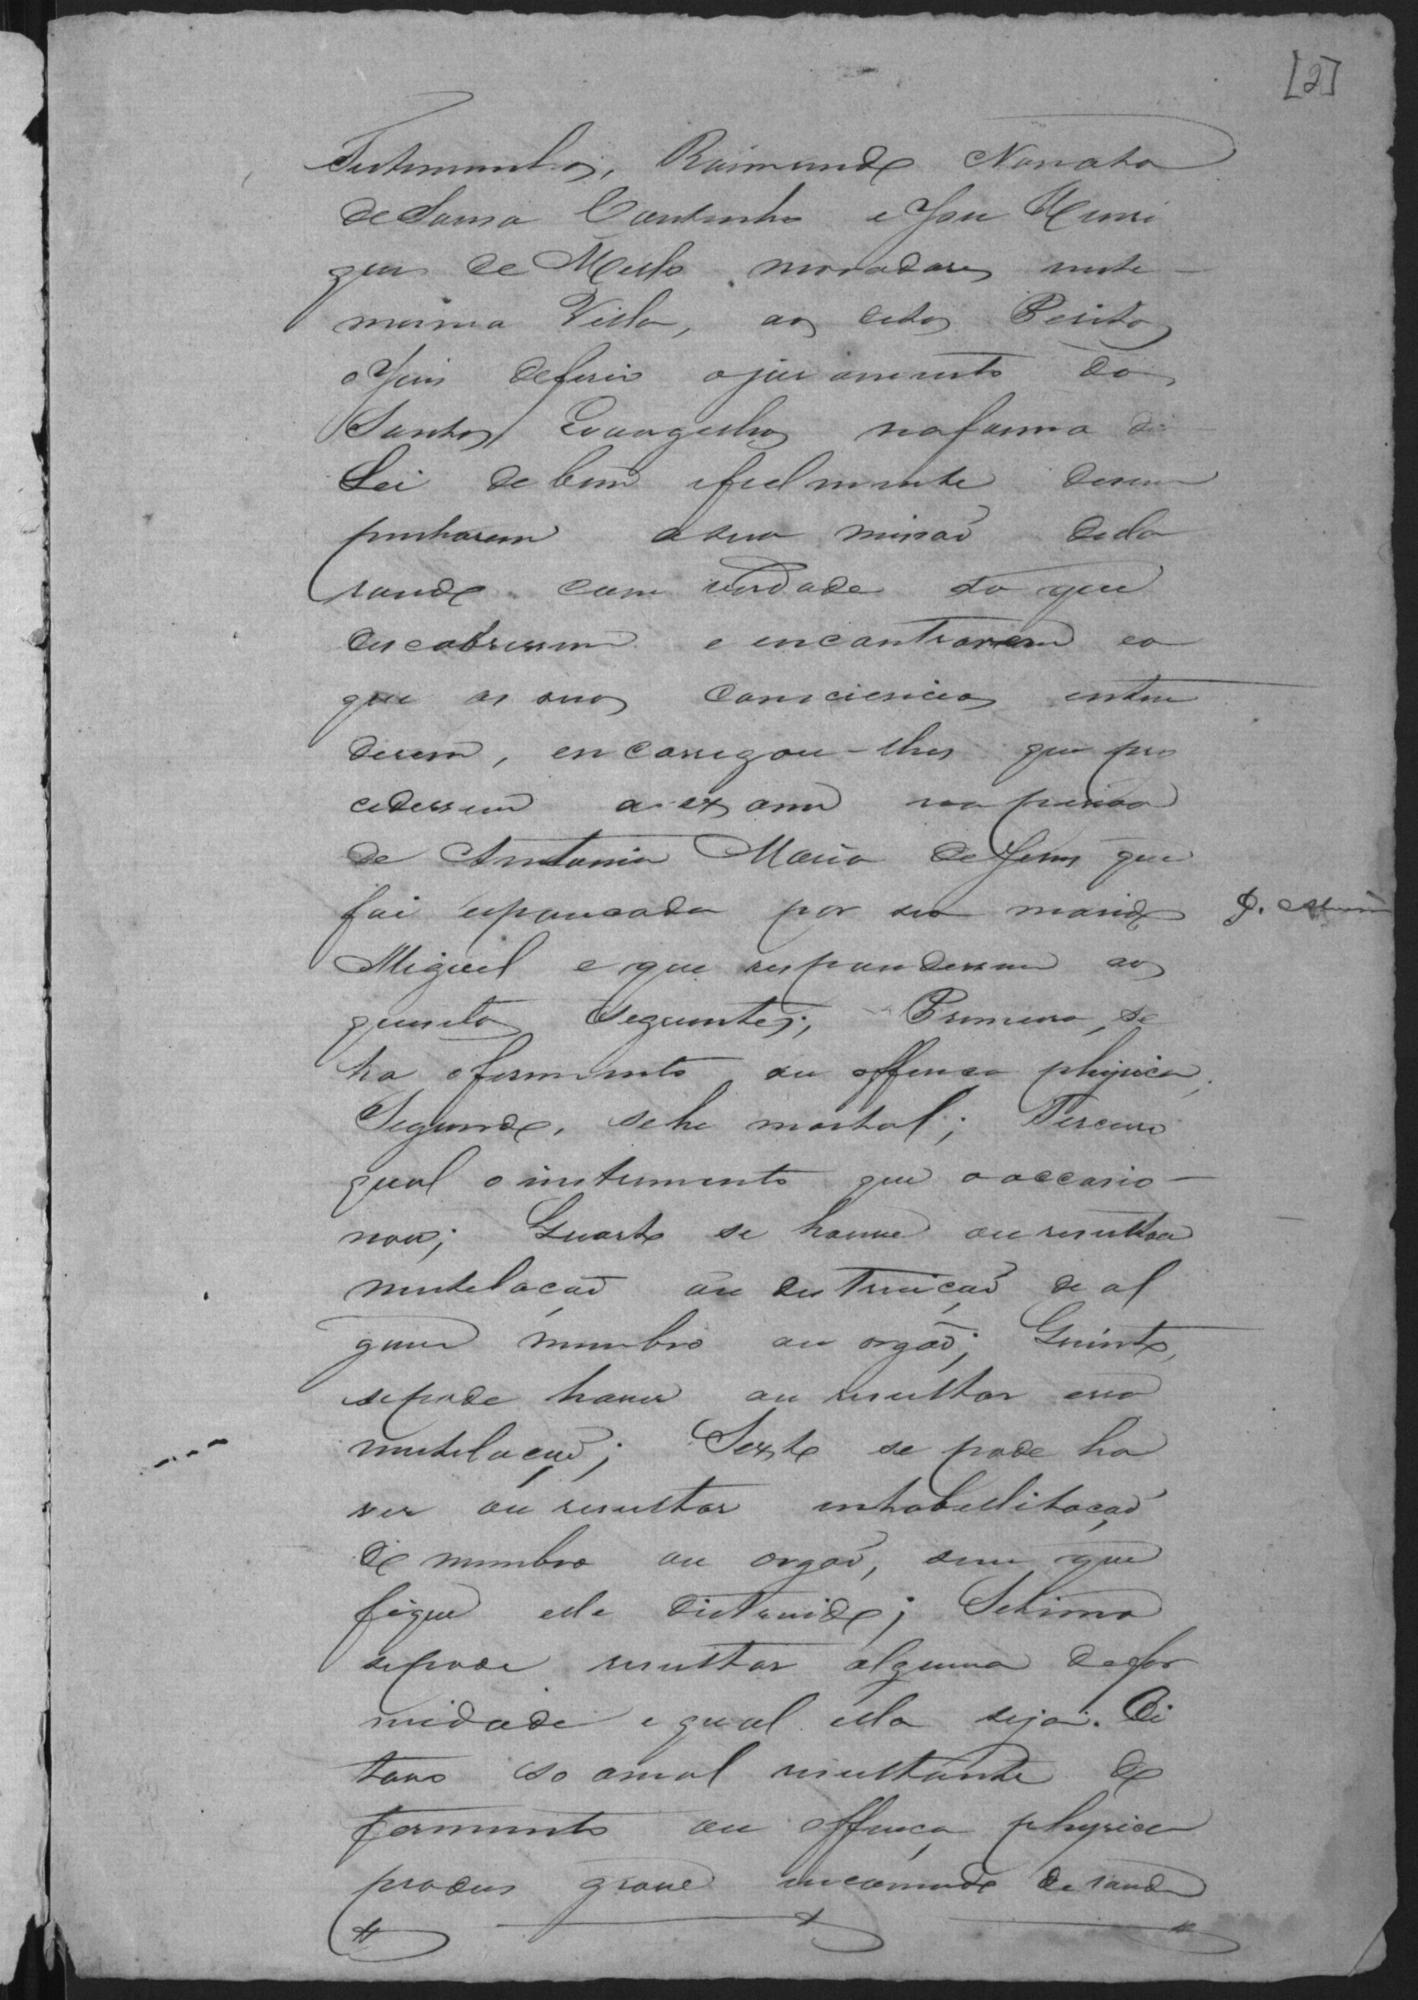 [2]
Testemunhas, Raimundo Nonato
de Sousa Coutinho e Jose Henri
ques de Mello moradores neste
mesma Villa, aos ditos Peritos
o Juis deferio o juramento dos
Santos Evangelhos na forma da
Lei de bem e fielmente desem
penharem a sua missaõ decla
rando com verdade so que
descobrissem e encontrarem e o
que as suas consciencias enten
derem, encarregou-lhes que pro
cedessem a exame na pessoa
de Antonia Maria de Jesus que
foi espancada por seo marido
Miguel e que respondessem aos
quesitos seguintes; Primeiro, se
ha o ferimento ou offensa physica,
Segundo, se he mortal; Terceiro
qual o instrumento que o occasio
nou; Quarto se houve ou resultou
mutelaçaõ ou destruiçaõ de al
gum membro ou orgaõ; Quinto,
se pode haver ou resultar essa
mutelaçaõ; Sexto se pode ha
ver ou resultar inhabellitaçaõ
de membro ou orgaõ, sem que
fique elle distruido; Setimo
se pode resultar alguma defor
midade e qual ella seja. Oi
tavo so o mal resultante do
ferimento ou offença physica
produs grave incomodo de saude